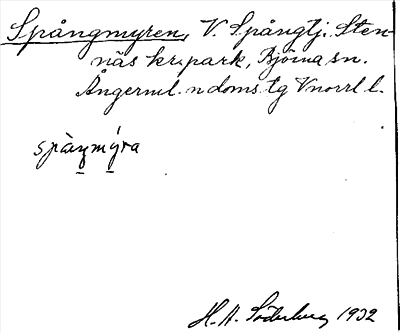 Spångmyren, V. Spångtj. Sten-
näs kr.park, Björna sn.
Ångerml. n doms.tg Vnorrl l.
spàŋmýra
H. A. Söderberg 1932